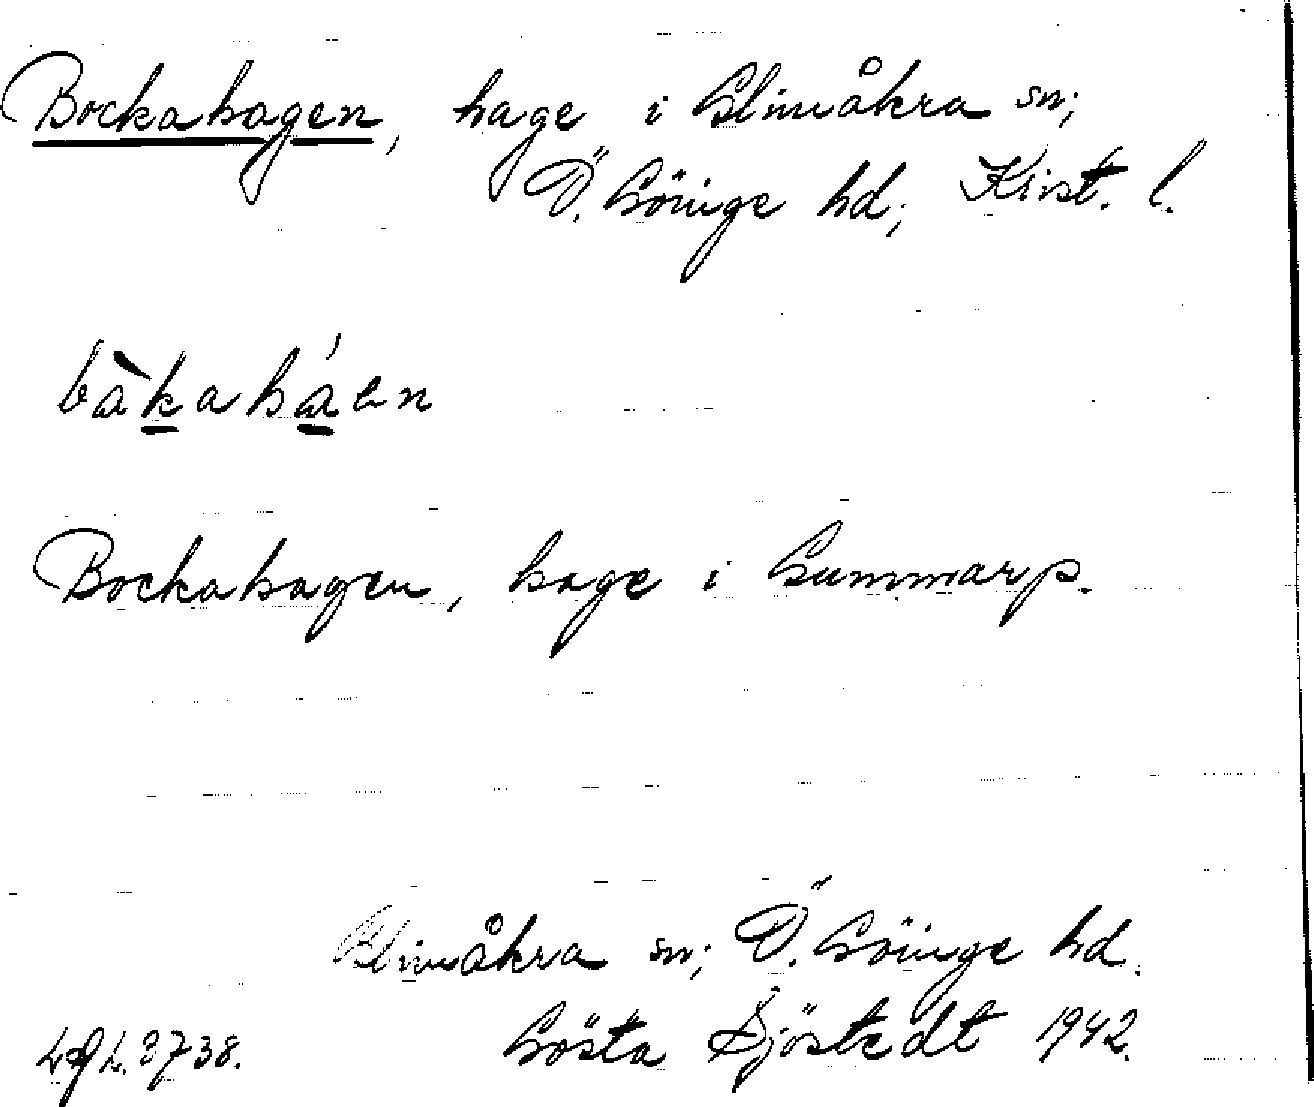 Bockahagen, hage i Glimåkra sn;
Ö. Göinge hd; Krist. l.
bàkaháen
Bockahagen, hage i Gummarp.
Glimåkra sn; Ö. Göinge hd.
Gösta Sjöstedt 1942.
2738.